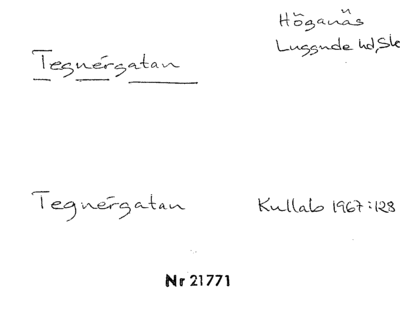 Höganäs
Luggude hd, Sk
Tegnérgatan
Tegnérgatan Kullab 1967:128
Nr 21771